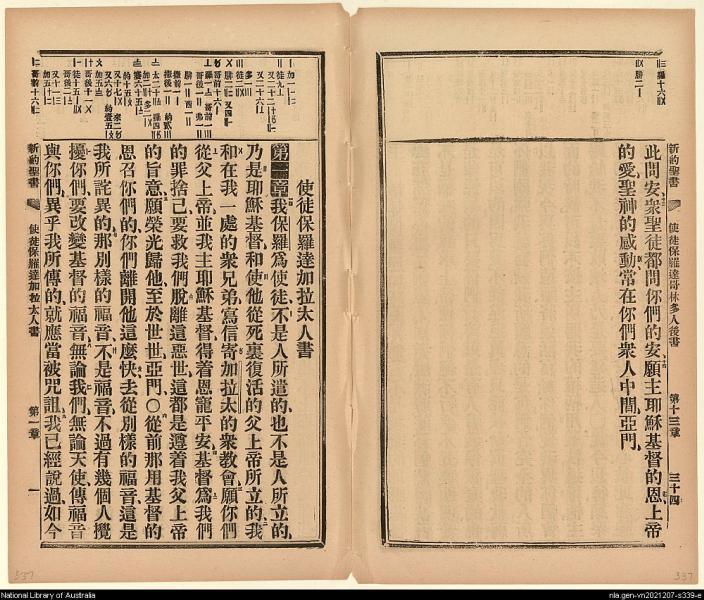 新約聖書
使徒保羅達哥林多人後書
第十三章
三十四
此問安衆聖徒都問你們的安願主耶穌基督的恩上帝
的愛聖神的感動常在你們衆人中間亞門
使徒保羅達加拉太人書
第一章我保羅爲使徒不是人所遣的也不是人所立的
乃是耶穌基督和使他從死裏復活的父上帝所立的我
和在我一處的衆兄弟寫信寄加拉太的衆教會願你們
從父上帝並我主耶穌基督得着恩寵平安基督爲我們
的罪捨己要救我們脫離這惡世這都是遵着我父上帝
的旨意願榮光歸他至於世世亞門〇從前那用基督的
恩召你們的你們離開他這麼快去從別樣的福音這是
我所詫異的那別樣的福音不是福音不過有幾個人攪
擾你們要改變基督的福音無論我們無論天使傳福音
與你們異乎我所傳的就應當被咒詛我已經說過如今
新約聖書
使徒保羅達加拉太人書
第一章
一
337
337
National Library of Australia
nla.gen-vn2021207-s339-e